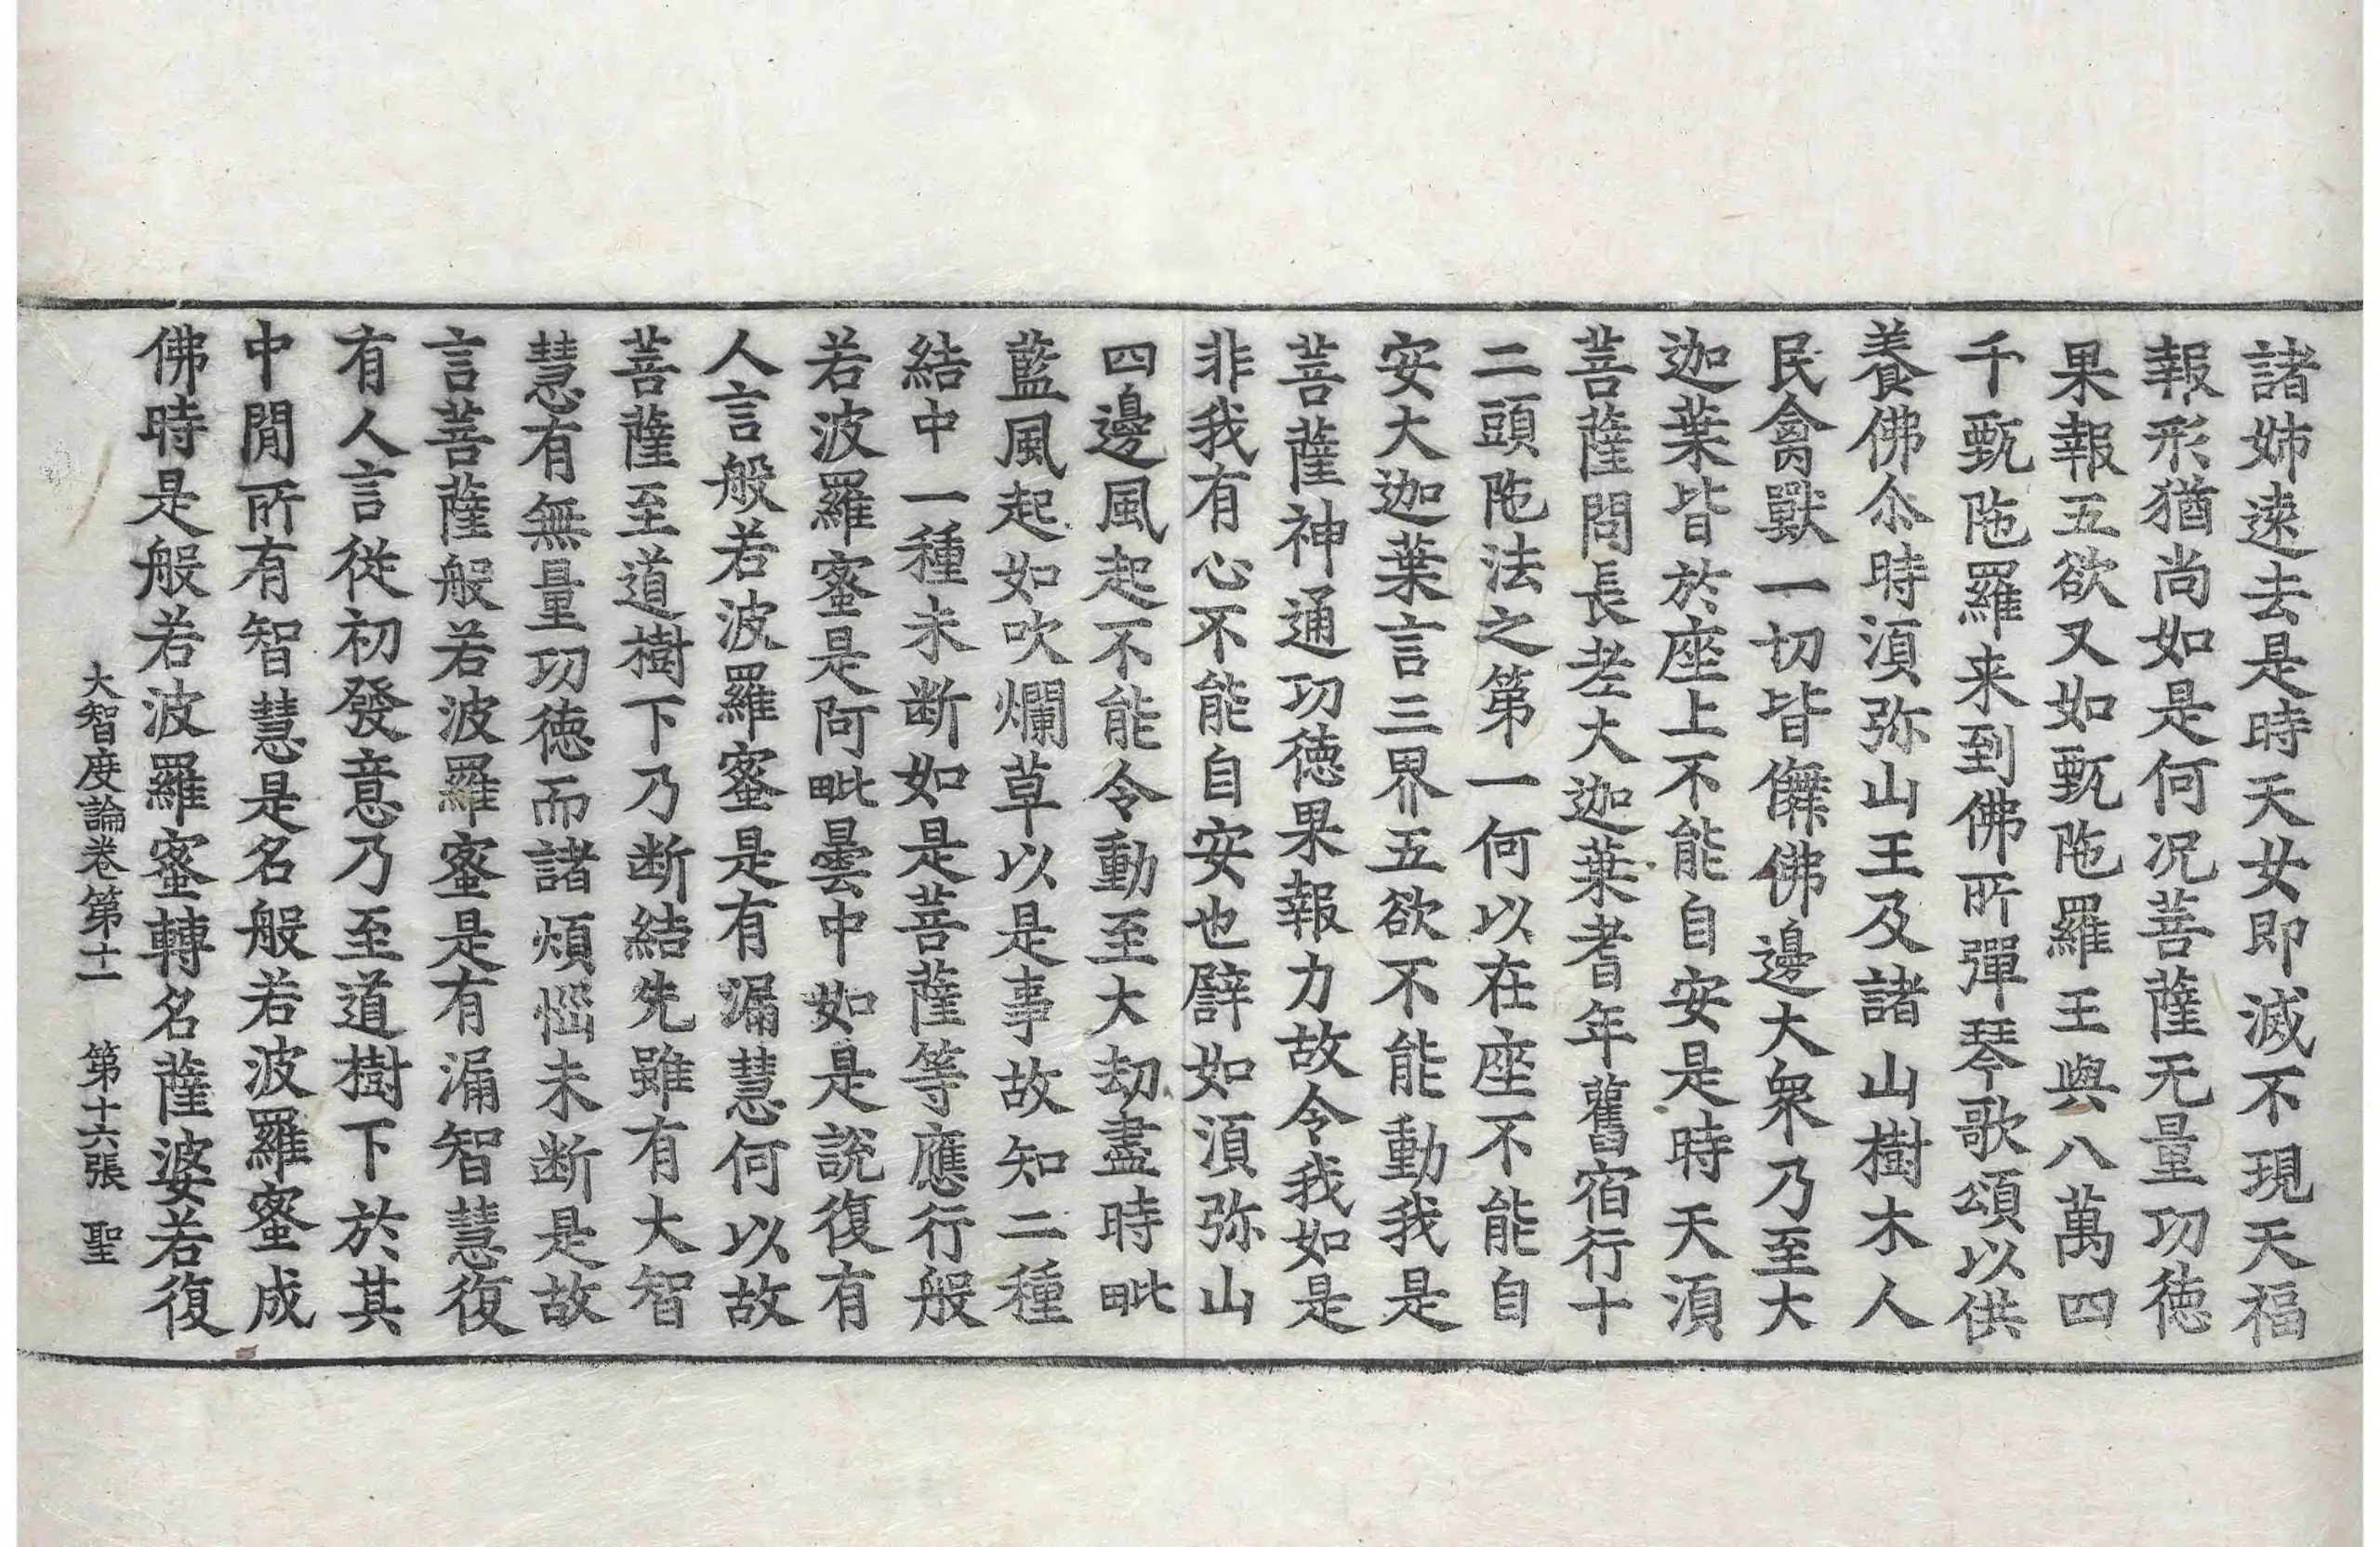 諸姉速去是時天女即滅不現天福
報形猶尚如是何况菩薩无量功德
果報五欲又如甄陁羅王與八萬四
千甄陁羅来到佛所彈琴歌頌以供
養佛尒時湏弥山王及諸山樹木人
民禽獸一切皆儛佛邊大衆乃至大
迦葉皆於座上不能自安是時天湏
菩薩問長老大迦葉耆年舊宿行十
二頭陁法之第一何以在座不能自
安大迦葉言三界五欲不能動我是
菩薩神通功德果報力故令我如是
非我有心不能自安也譬如湏弥山
四邊風起不能令動至大劫盡時毗
藍風起如吹爛草以是事故知二種
結中一種未断如是菩薩等應行般
若波羅蜜是阿毗曇中如是說復有
人言般若波羅蜜是有漏慧何以故
菩薩至道樹下乃断結先雖有大智
慧有無量功德而諸煩惱未断是故
言菩薩般若波羅蜜是有漏智慧復
有人言從初發意乃至道樹下於其
中間所有智慧是名般若波羅蜜成
佛時是般若波羅蜜轉名薩婆若復
大智度論卷第十一 第十六張 聖